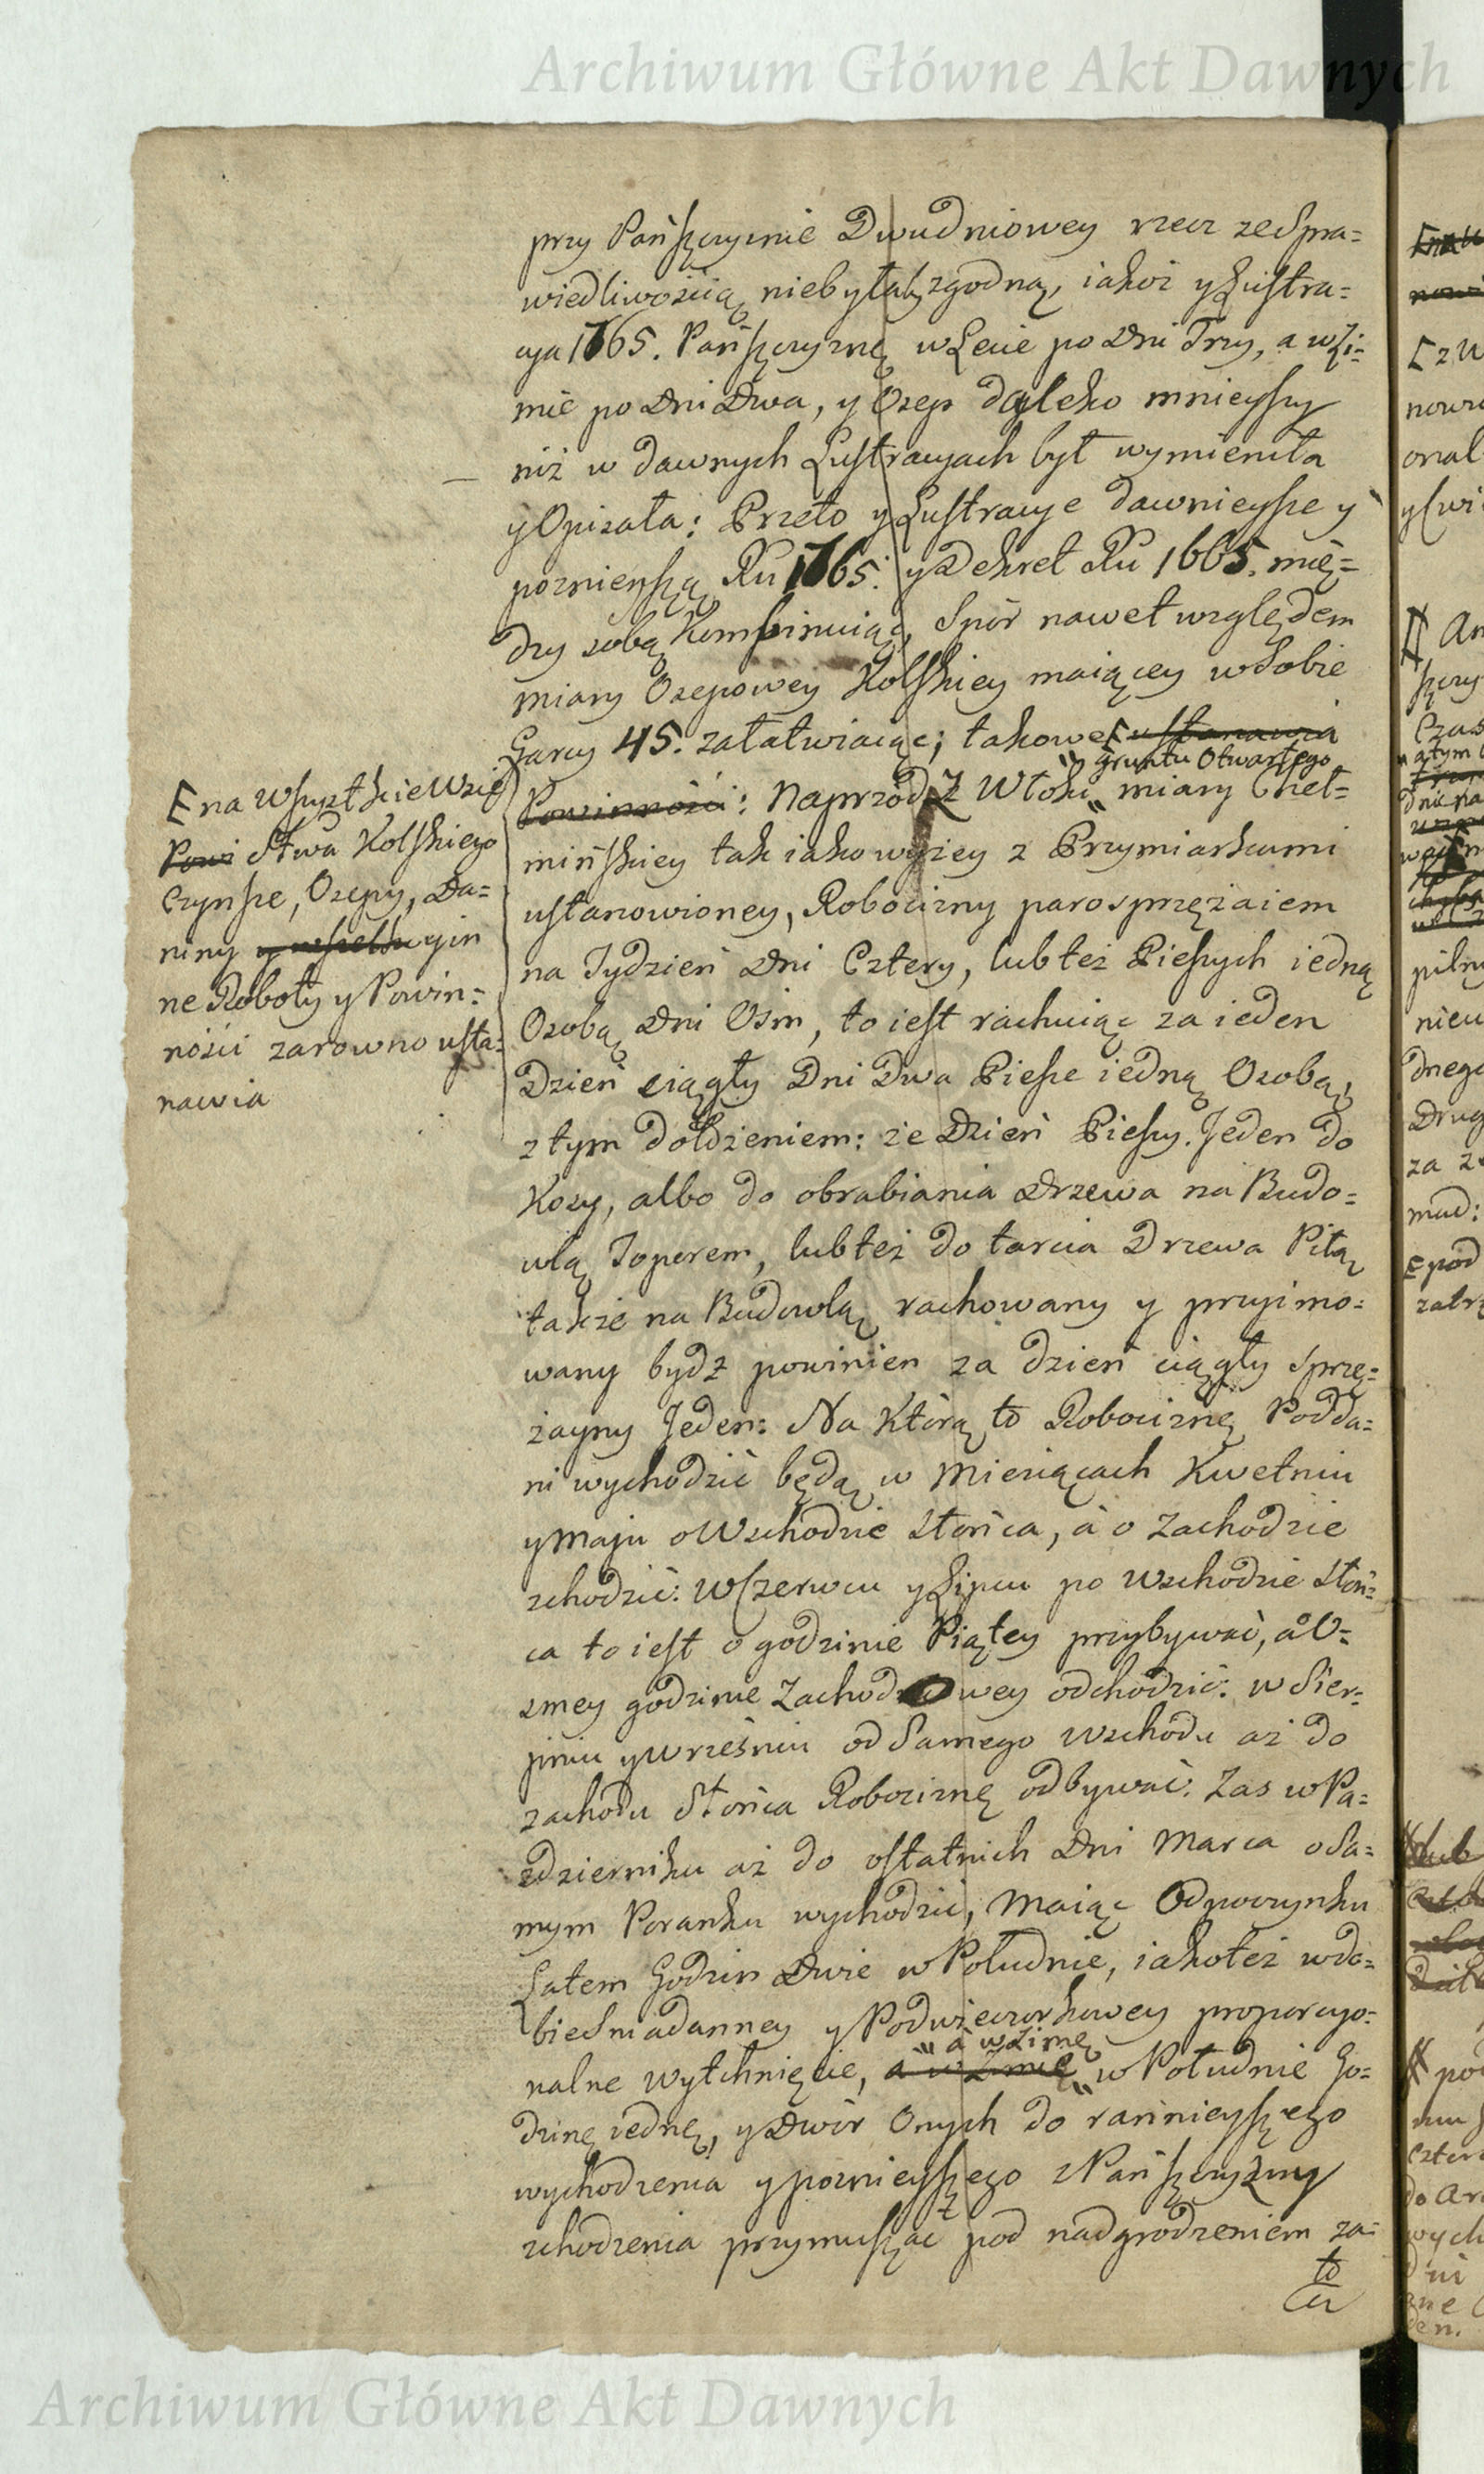 Archiwum Główne Akt Dawnych
przy Pańszczyznie Dwudniowey rzecz ze Spra=
wiedliwością niebyłaby zgodną, iakoż y Lustra=
cya 1765. Pańszczyznę w Lecie po Dni Trzy, a w Zi=
mie po Dni Dwa, y Osep daleko mnieyszy
niż w dawnych Lustracyach był wymieniła
y Opisała: Przeto y Lustracye dawnieysze y
poznieyszą Ru 1765. y Dekret Ru 1665. mię=
dzy sobą Kombinuiąc, Spór nawet względem
miary Osepowey Kolskiey maiącey w Sobie
Garcy 45. załatwiaiąc; takowe [ustanawia
gruntu Otwartego
Powinności: Naprzód Z Włoki miary Cheł=
mińskiey tak iako wyżey z Przymiarkami
ustanowioney, Robocizny parosprzężaiem
na Tydzień Dni Cztery, lub też Pieszych iedną
Osobą Dni Osm, to iest rachuiąc za ieden
Dzień ciągły Dni Dwa Piesze iedną Osobą,
z tym dołożeniem: że Dzień Pieszy Jeden do
Kosy, albo do obrabiania Drzewa na Budo=
wlą Toporem, lub też do tarcia Drzewa Piłą
także na Budowlą rachowany y przyimo=
wany bydź powinien za dzień ciągły Sprzę=
żayny Jeden: Na Którą to Robociznę Podda=
ni wychodzić będą w Miesiącach Kwetniu
y Maju o Wschodzie Słońca, á o Zachodzie
schodzić: W Czerwcu y Lipcu po Wschodzie Słoń=
ca to iest o godzinie Piątey przybywać, á O=
smey godzinie Zachodowey odchodzić: w Sier=
pniu y Wrześniu od Samego Wschodu aż do
zachodu Słońca Robociznę odbywać. Zas w Pa=
zdzierniku aż do ostatnich Dni Marca o Sa=
mym Poranku wychodzić, Maiąc Odpoczynku
Latem Godzin Dwie w Południe, iakoteż w do=
bie Sniadanney y Podwieczorkowey proporcyo=
à w Zimę
nalne wytchnięcie, a w Zimie w Południe Go=
dzinę iednę, y Dwór Onych do rannieyszego
wychodzenia y poznieyszego z Pańszczyzny
schodzenia przymuszać pod nadgrodzeniem za=
to
[na Wszystkie Wsie
Powi Stwa Kolskiego
Czynsze, Osepy, Da=
niny y wszelkie y in
ne Roboty y Powin=
ności zarowno usta=
nawia
Archiwum Główne Akt Dawnych